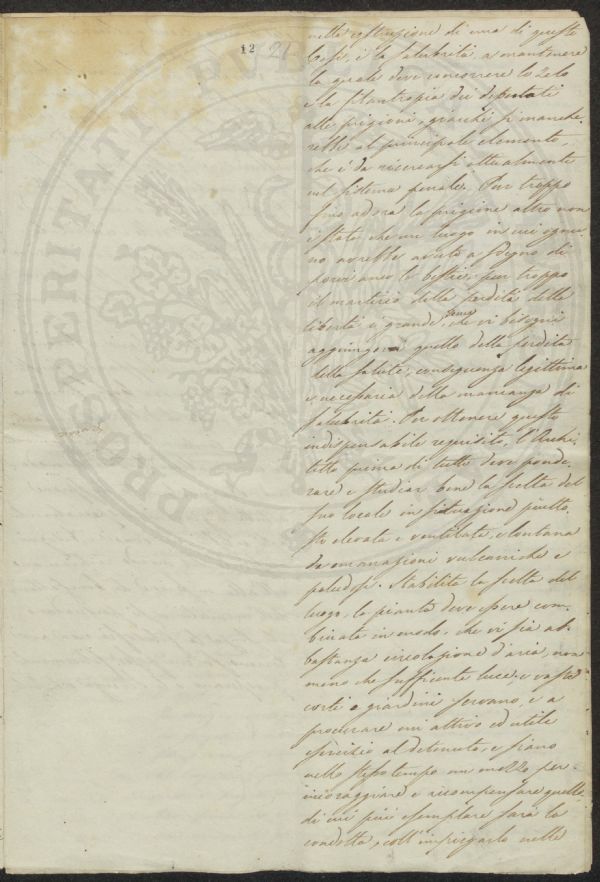 12 21
nella costruzione di una di queste
Case, è la salubrità, a mantenere
la quale deve concorrere lo zelo
e la filantropia dei deputati
alle prigioni, giacchè si manche,
rebbe al principale elemento,
che è da ricercarsi attualmente
nel sistema penale. Pur troppo
fino ad ora la prigione altro non
è stata che un luogo in cui ognu,
no avrebbe avuto a sdegno di
porvi anco le bestie, pur troppo
il martirio della perdita della
libertà è grande, senza che vi bisogni
aggiungervi quello della perdita
della salute, conseguenza legittima
e necessaria della mancanza di
salubrità. Per ottenere questo
indispensabile requisito, l'Archi,
tetto prima di tutto deve ponde,
rare e studiar bene la scelta del
suo locale in situazione piutto,
sto elevata e ventilata, e lontana
da emanazioni vulcaniche e
paludose. Stabilita la scelta del
luogo, la pianta deve essere com,
binata in modo, che vi sia ab,
bastanza circolazione d'aria, non
meno che sufficiente luce, e vaste
corti o giardini servano, e a
procurare un attivo ed utile
esercizio al detenuto, e siano
nello stesso tempo un mezzo per
incoraggiare e ricompensare quello,
di cui più esemplare sarà la
condotta, coll'impiegarlo nelle
PROSPERITATI PVBLICAE